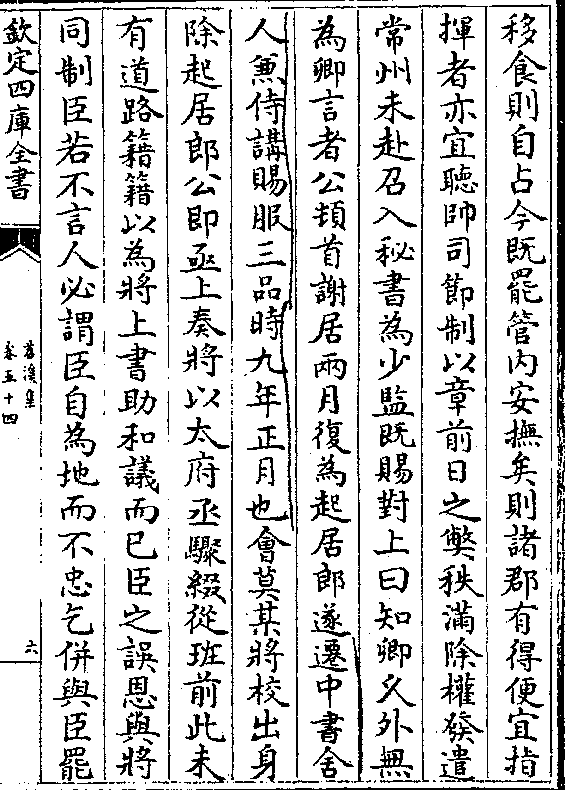 移食則自占今既罷管内安撫矣則諸郡有得便宜指
揮者亦宜聽帥司節制以章前日之弊秩滿除權發遣
常州未赴召入秘書為少監既賜對上曰知卿久外無
為卿言者公頓首謝居兩月復為起居郎遂遷中書舍
人兼侍講賜服三品時九年正月也會莫某將校出身
除起居郎公即亟上奏將以太府丞驟綴從班前此未
有道路籍籍以為將上書助和議而已臣之誤恩與將
同制臣若不言人必謂臣自為地而不忠乞併與臣罷
欽定四庫全書
苕溪集
卷五十四
六